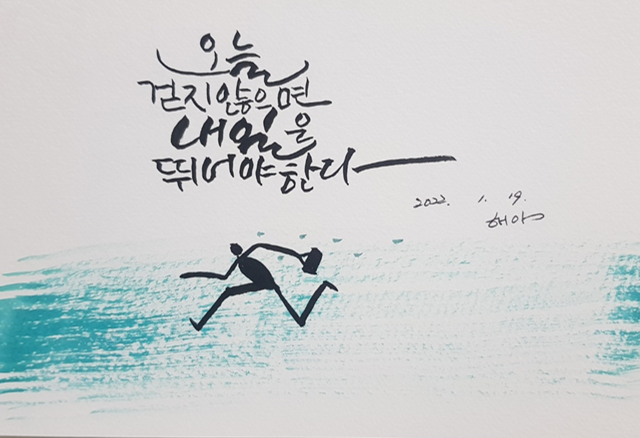 오늘
걷지 않으면
내일은
뛰어야 한다
2022. 1. 19.
해야